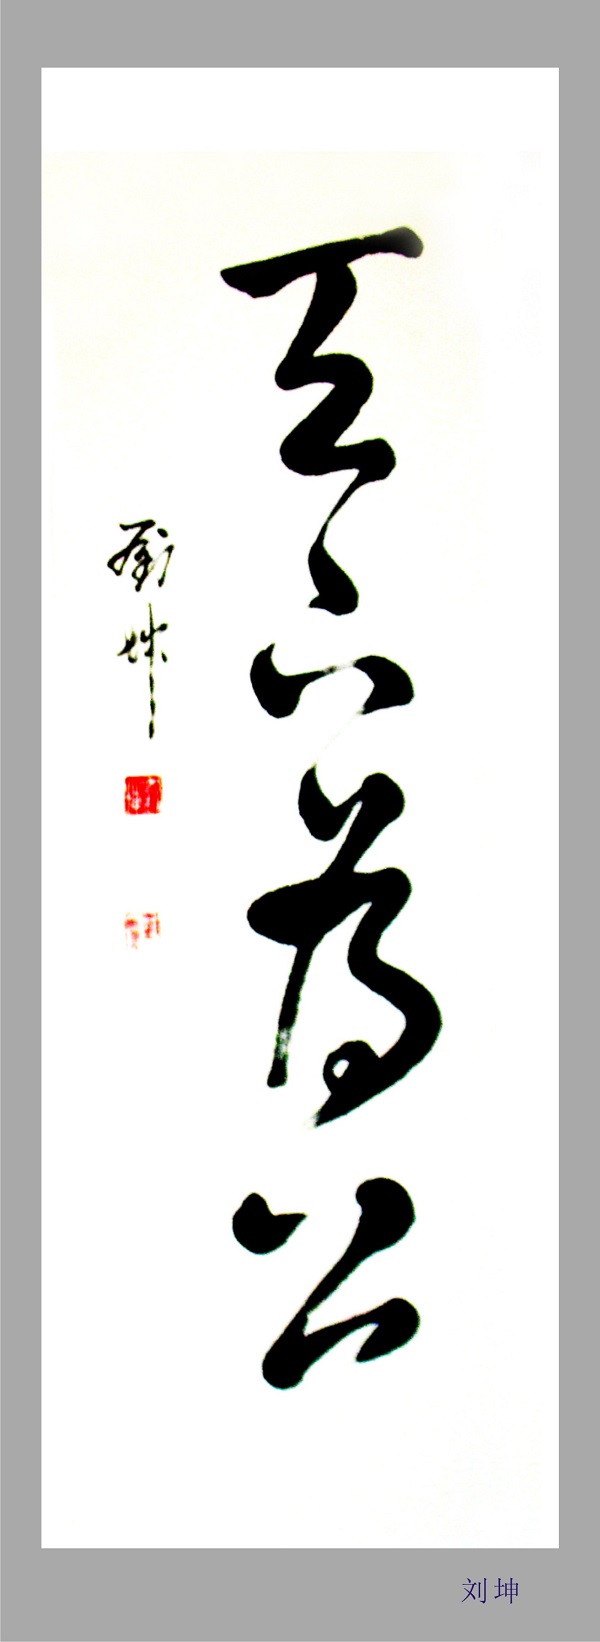 天下為公
劉坤
刘坤